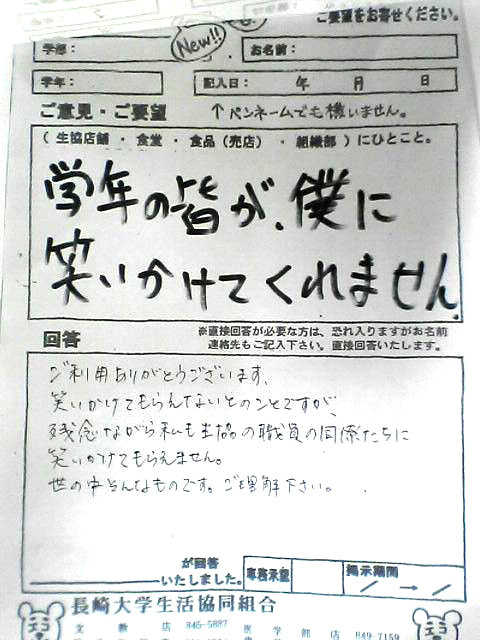 ご要望をお寄せください。
New!!
学部： お名前：
学年： 記入日： 年 月 日
ご意見・ご要望 ↑ペンネームでも構いません。
（生協店舗 ・ 食堂 ・ 食品（売店） ・ 組織部）にひとこと。
学年の皆が、僕に
笑いかけてくれません
回答 ※直接回答が必要な方は、恐れ入りますがお名前
連絡先もご記入下さい。直接回答いたします。
ご利用ありがとうございます。
笑いかけてもらえないとのことですが、
残念ながら私も生協の職員の同僚たちに
笑いかけてもらえません。
世の中そんなものです。ご理解下さい。
が回答
いたしました。 専務承認 掲示期間
／ → ／
長崎大学生活協同組合
文教店 845-5887 医学部店 849-7159